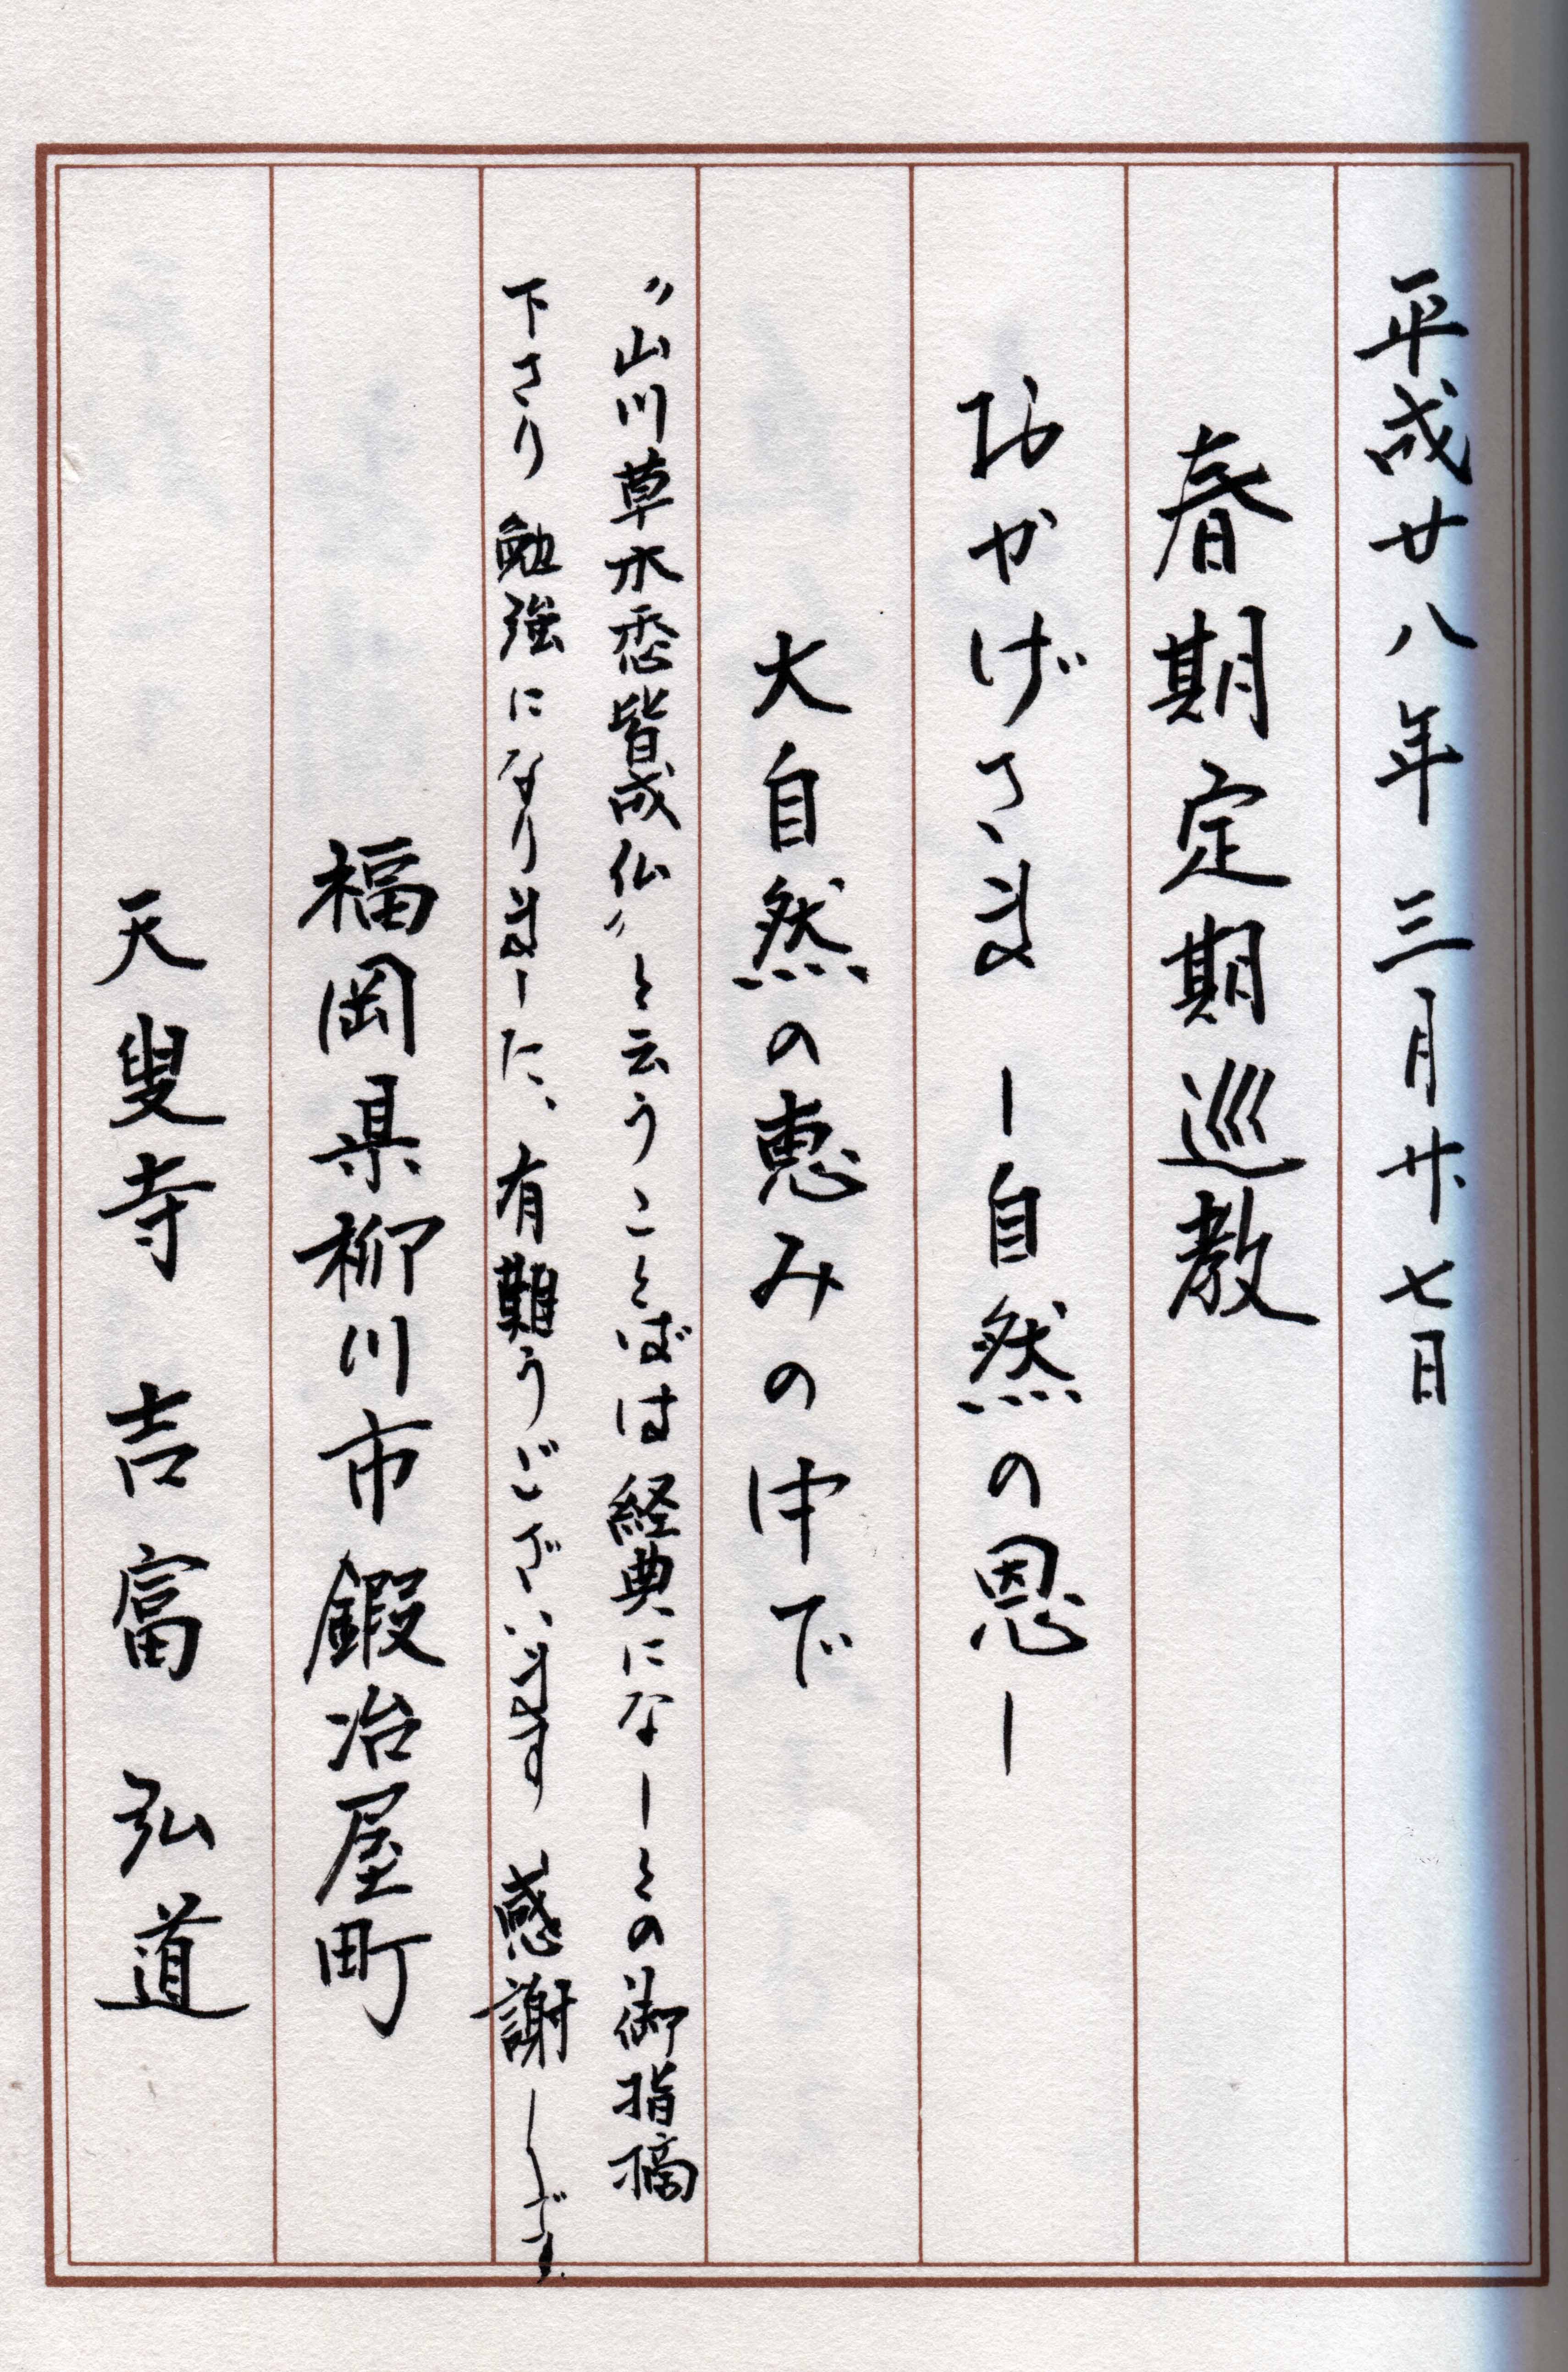 平成廿八年 三月廿七日
春期定期巡教
おかげさま ー自然の恩ー
大自然の恵みの中で
〃山川草木悉皆成仏〃と云うことばは経典になしとの御指摘
下さり 勉強になりました、有難うございます 感謝しです
福岡県柳川市鍜冶屋町
天叟寺 吉富 弘道